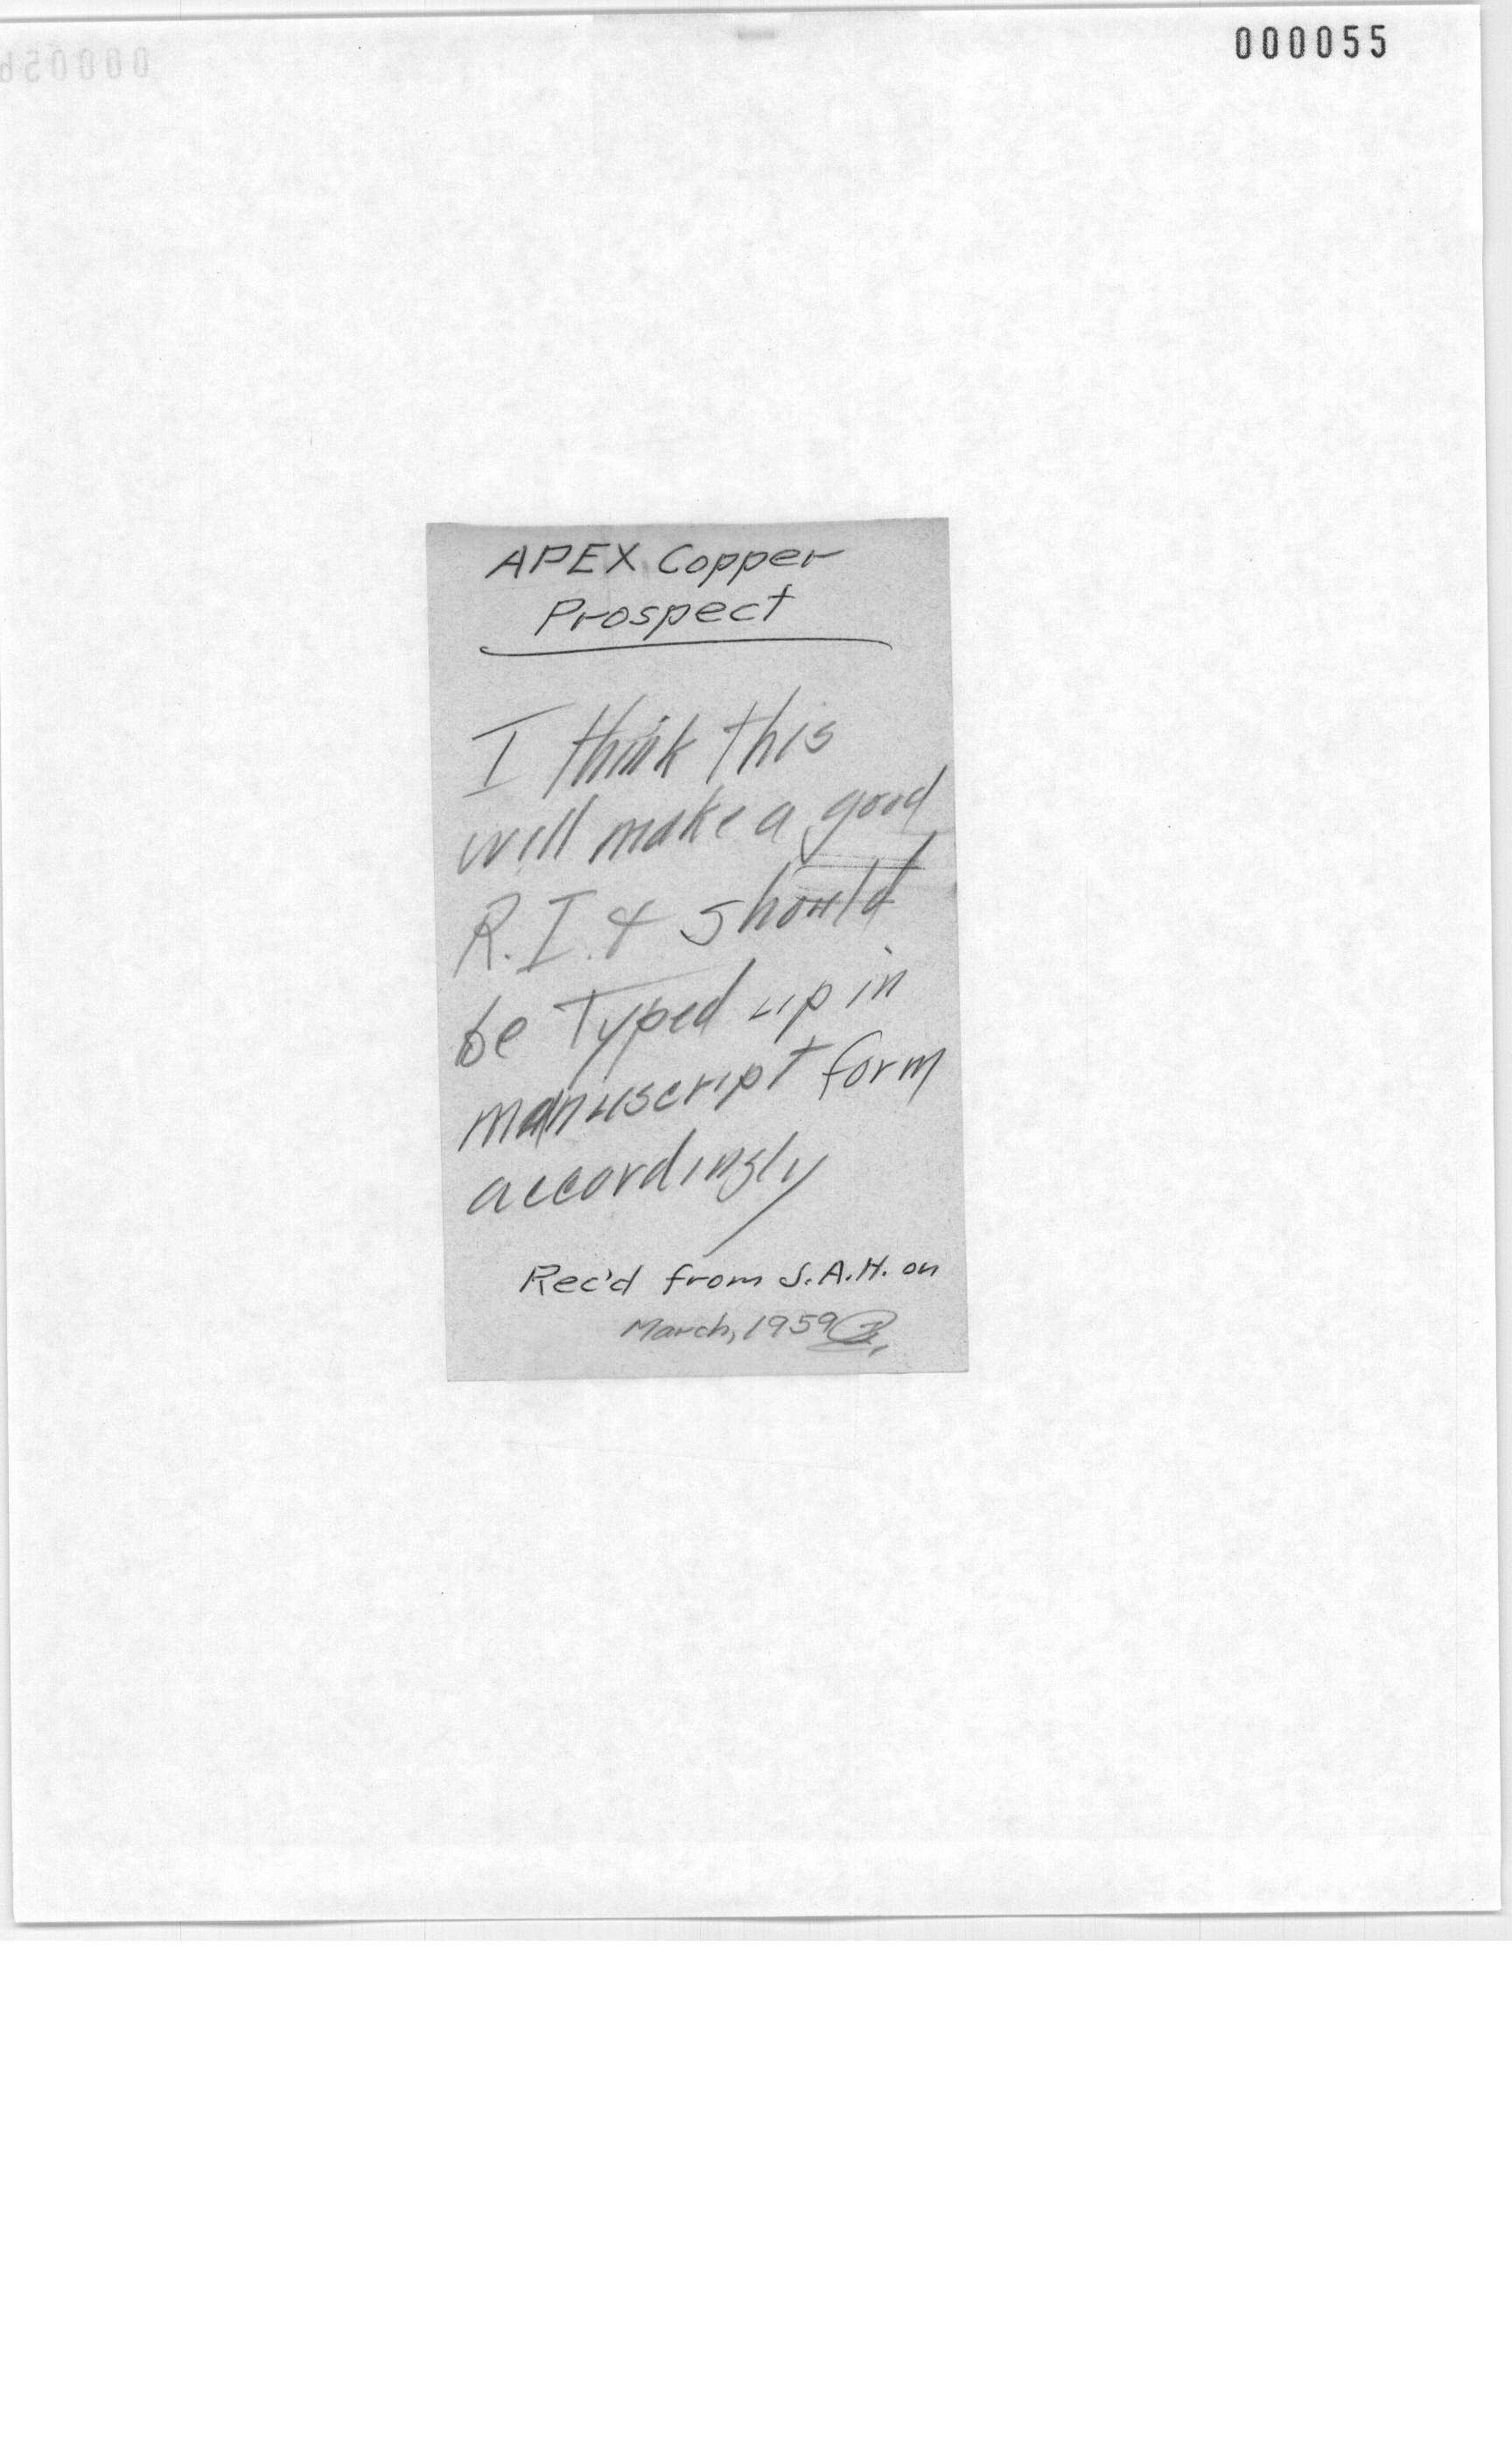 000055
APEX Copper
Prospect
I think this
will make a good
R.I. & should
be Typed up in
manuscript form
accordingly
Rec'd from S.A.H. on
March, 1959